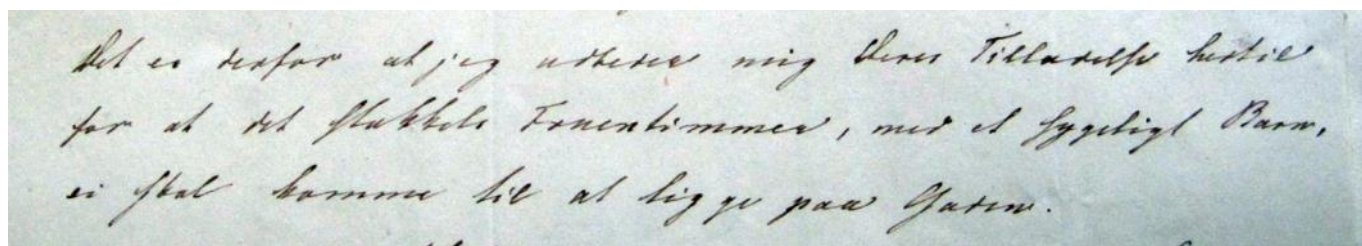 Det er derfor at jeg udbeder mig Deres Tilladelse hertil
for at det stakkels Fruentimmer, med et sygeligt Barn,
ei skal komme til at ligge paa Gaden.